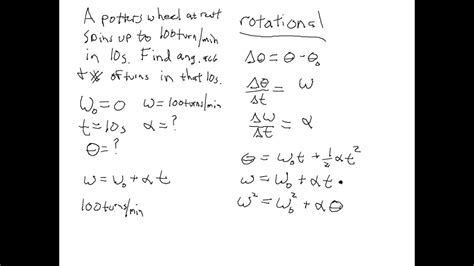 A potters wheel at rest
spins up to 100 turn/min
in 10s. Find ang. acc
+ # of turns in that 10s.
ω₀ = 0 ω = 100 turns/min
t = 10s α = ?
θ = ?
ω = ω₀ + αt
100 turns/min
rotational
Δθ = θ - θ₀
Δθ/Δt = ω
Δω/Δt = α
θ = ω₀t + 1/2 αt²
ω = ω₀ + αt
ω² = ω₀² + αθ